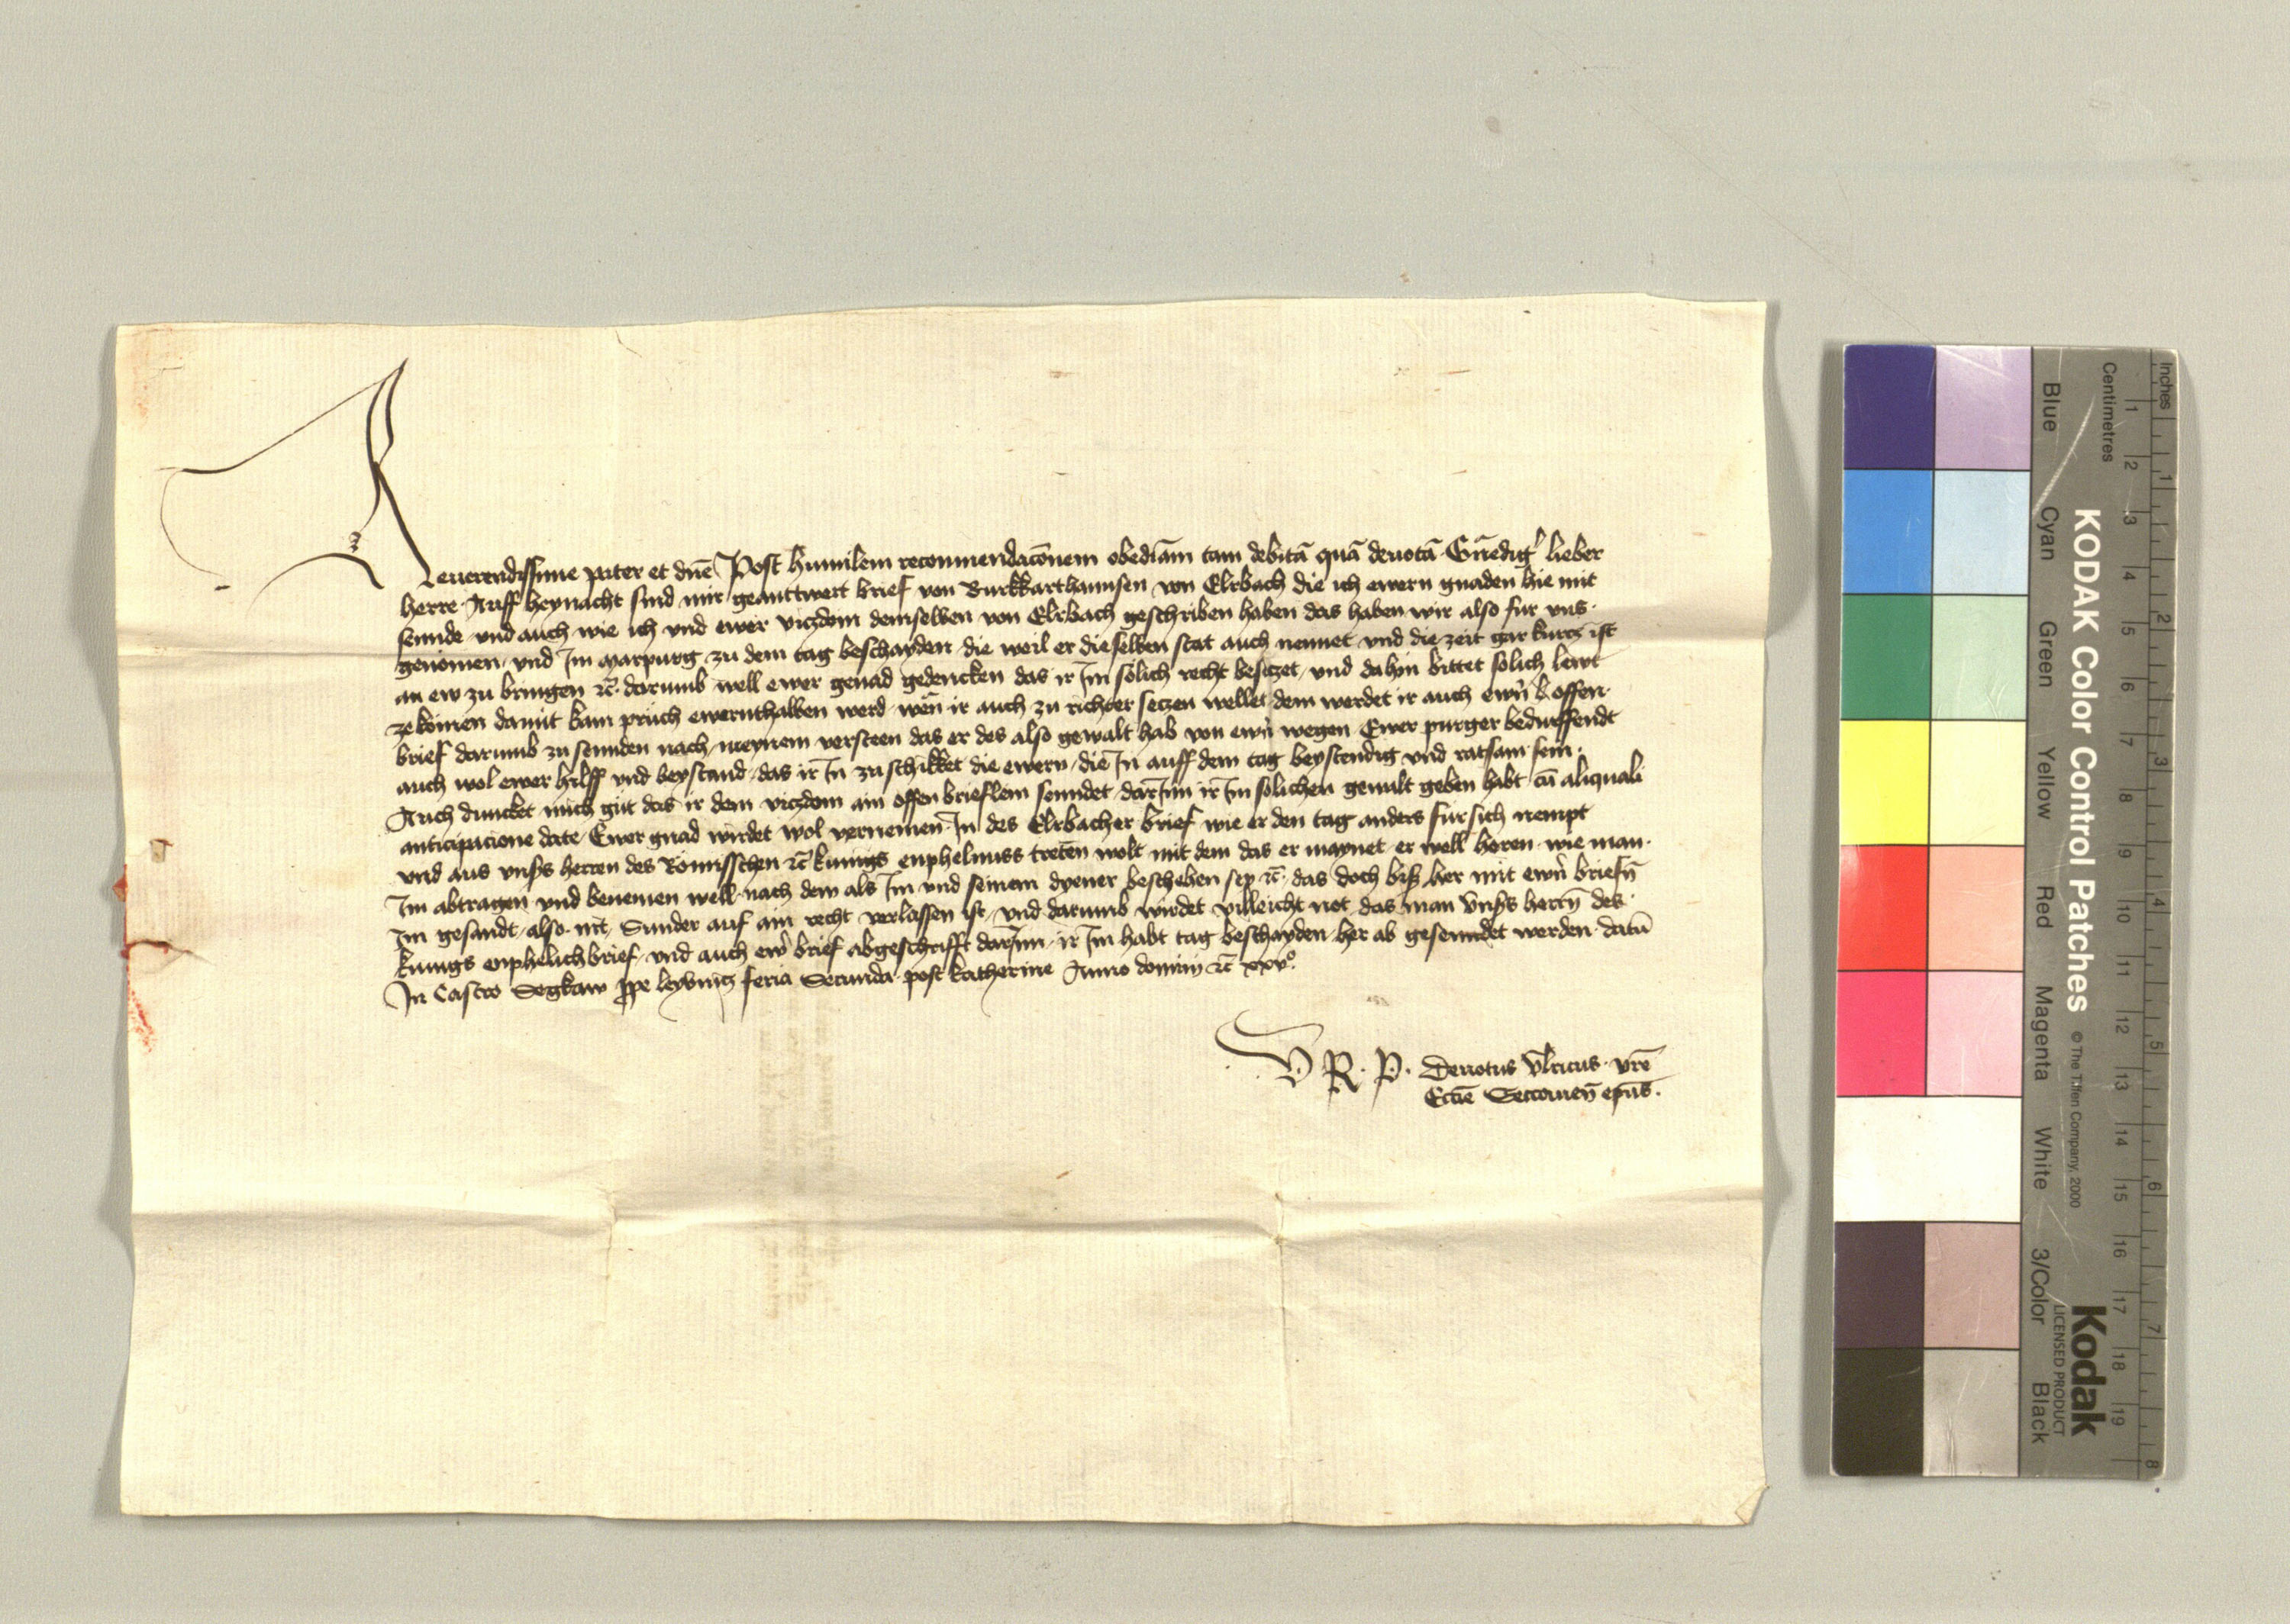 Reuerendissime pater et dn̄e Post humilem recommendac̄onem obediām tam debitā quā deuotā Gn̄edigʼ lieber
herre Auff heynacht sind mir geanttwert brief von Burkkarthannsen von Elrbach die ich ewern gnaden hie mit
sennde vnd auch wie ich vnd ewer viczdom demselben von Elrbach geschriben haben das haben wir also fur vns
genomen vnd Im Marpurg zu dem tag beschayden die weil er dieselben stat auch nennet vnd die zeit gar kurcz ist
an ew zu bringen ꝛc̄ darumb well ewer genad gedencken das ir Im solich recht beseczet vnd dahin bittet solich lewt
ze komen damit kain pruch ewernthalben werd wen̄ ir auch zu richter seczen wellet dem werdet ir auch ewrn̄ offen
brief darumb zu sennden nach meynem versteen das er des also gewalt hab von ewrn̄ wegen Ewer purger bedurffendt
auch wol ewer hilff vnd beystand das ir In zuschikket die ewern die In auff dem tag beystendig vnd ratsam sein
Auch dunckt mich gut das ir dem viczdom ain offen brieflein senndet darInn ir Im solichen gewalt geben habt cū aliquali
anticipacione date Ewer gnad wirdet wol vernemen In des Elrbacher brief wie er den tag anders fur sich nempt
vnd aus vnsʼs herren des Romisschen ꝛc̄ kunigs enphelnuss treten wolt mit dem das er maynet er well horen wie man
Im abtragen vnd benemen well nach dem als Im vnd seinem dyener bescheben sey ꝛc̄ das doch bis her mit ewrn̄ briefn̄
Im gesandt also nit Sunder auf ain recht verlassen ist vnd darumb wirdet villeicht not das man vnsʼs herrn̄ des
kunigs enphelichbrief vnd auch ewr̄ brief abgeschrifft darInn ir Im habt tag beschayden her ab gesenndet werden datū
In Castro Segkaw ꝓpe leybnicz feria Secunda post katherine Anno domini ꝛc̄ xxvº
V. R. P. Deuotus Vlricus vr̄e
Ecc̄ie Seccouen̄ ep̄us.
KODAK Color Control Patches © The Tiffen Company, 2000
Kodak
LICENSED PRODUCT
Inches 1 2 3 4 5 6 7 8
Centimetres 1 2 3 4 5 6 7 8 9 10 11 12 13 14 15 16 17 18 19
Blue Cyan Green Yellow Red Magenta White 3/Color Black